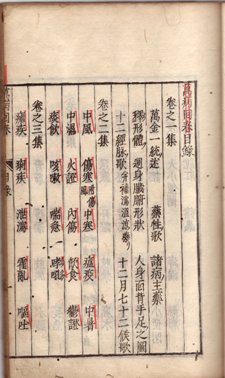 萬病回春目錄
卷之一集
萬金一統述 藥性歌 諸病主藥
釋形體 周身臟腑形狀 人身面背手足之圖
十二經脉歌 并補瀉溫涼藥 十二月七十二候歌
卷之二集
中風 傷寒 中寒 瘟疫 中暑
中濕 火證 內傷 飲食 鬱證
痰飲 咳嗽 喘急 哮吼
卷之三集
瘧疾 痢疾 泄瀉 霍亂 嘔吐
病回春 目錄